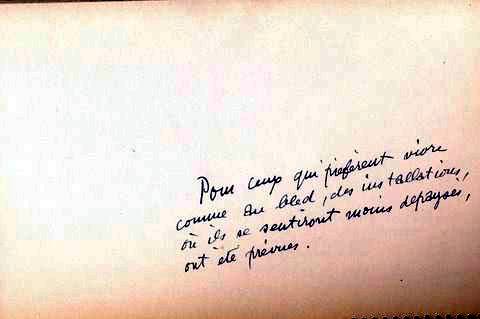 Pour ceux qui préfèrent vivre
comme au bled, des installations,
où ils se sentiront moins dépaysés,
ont été prévues.